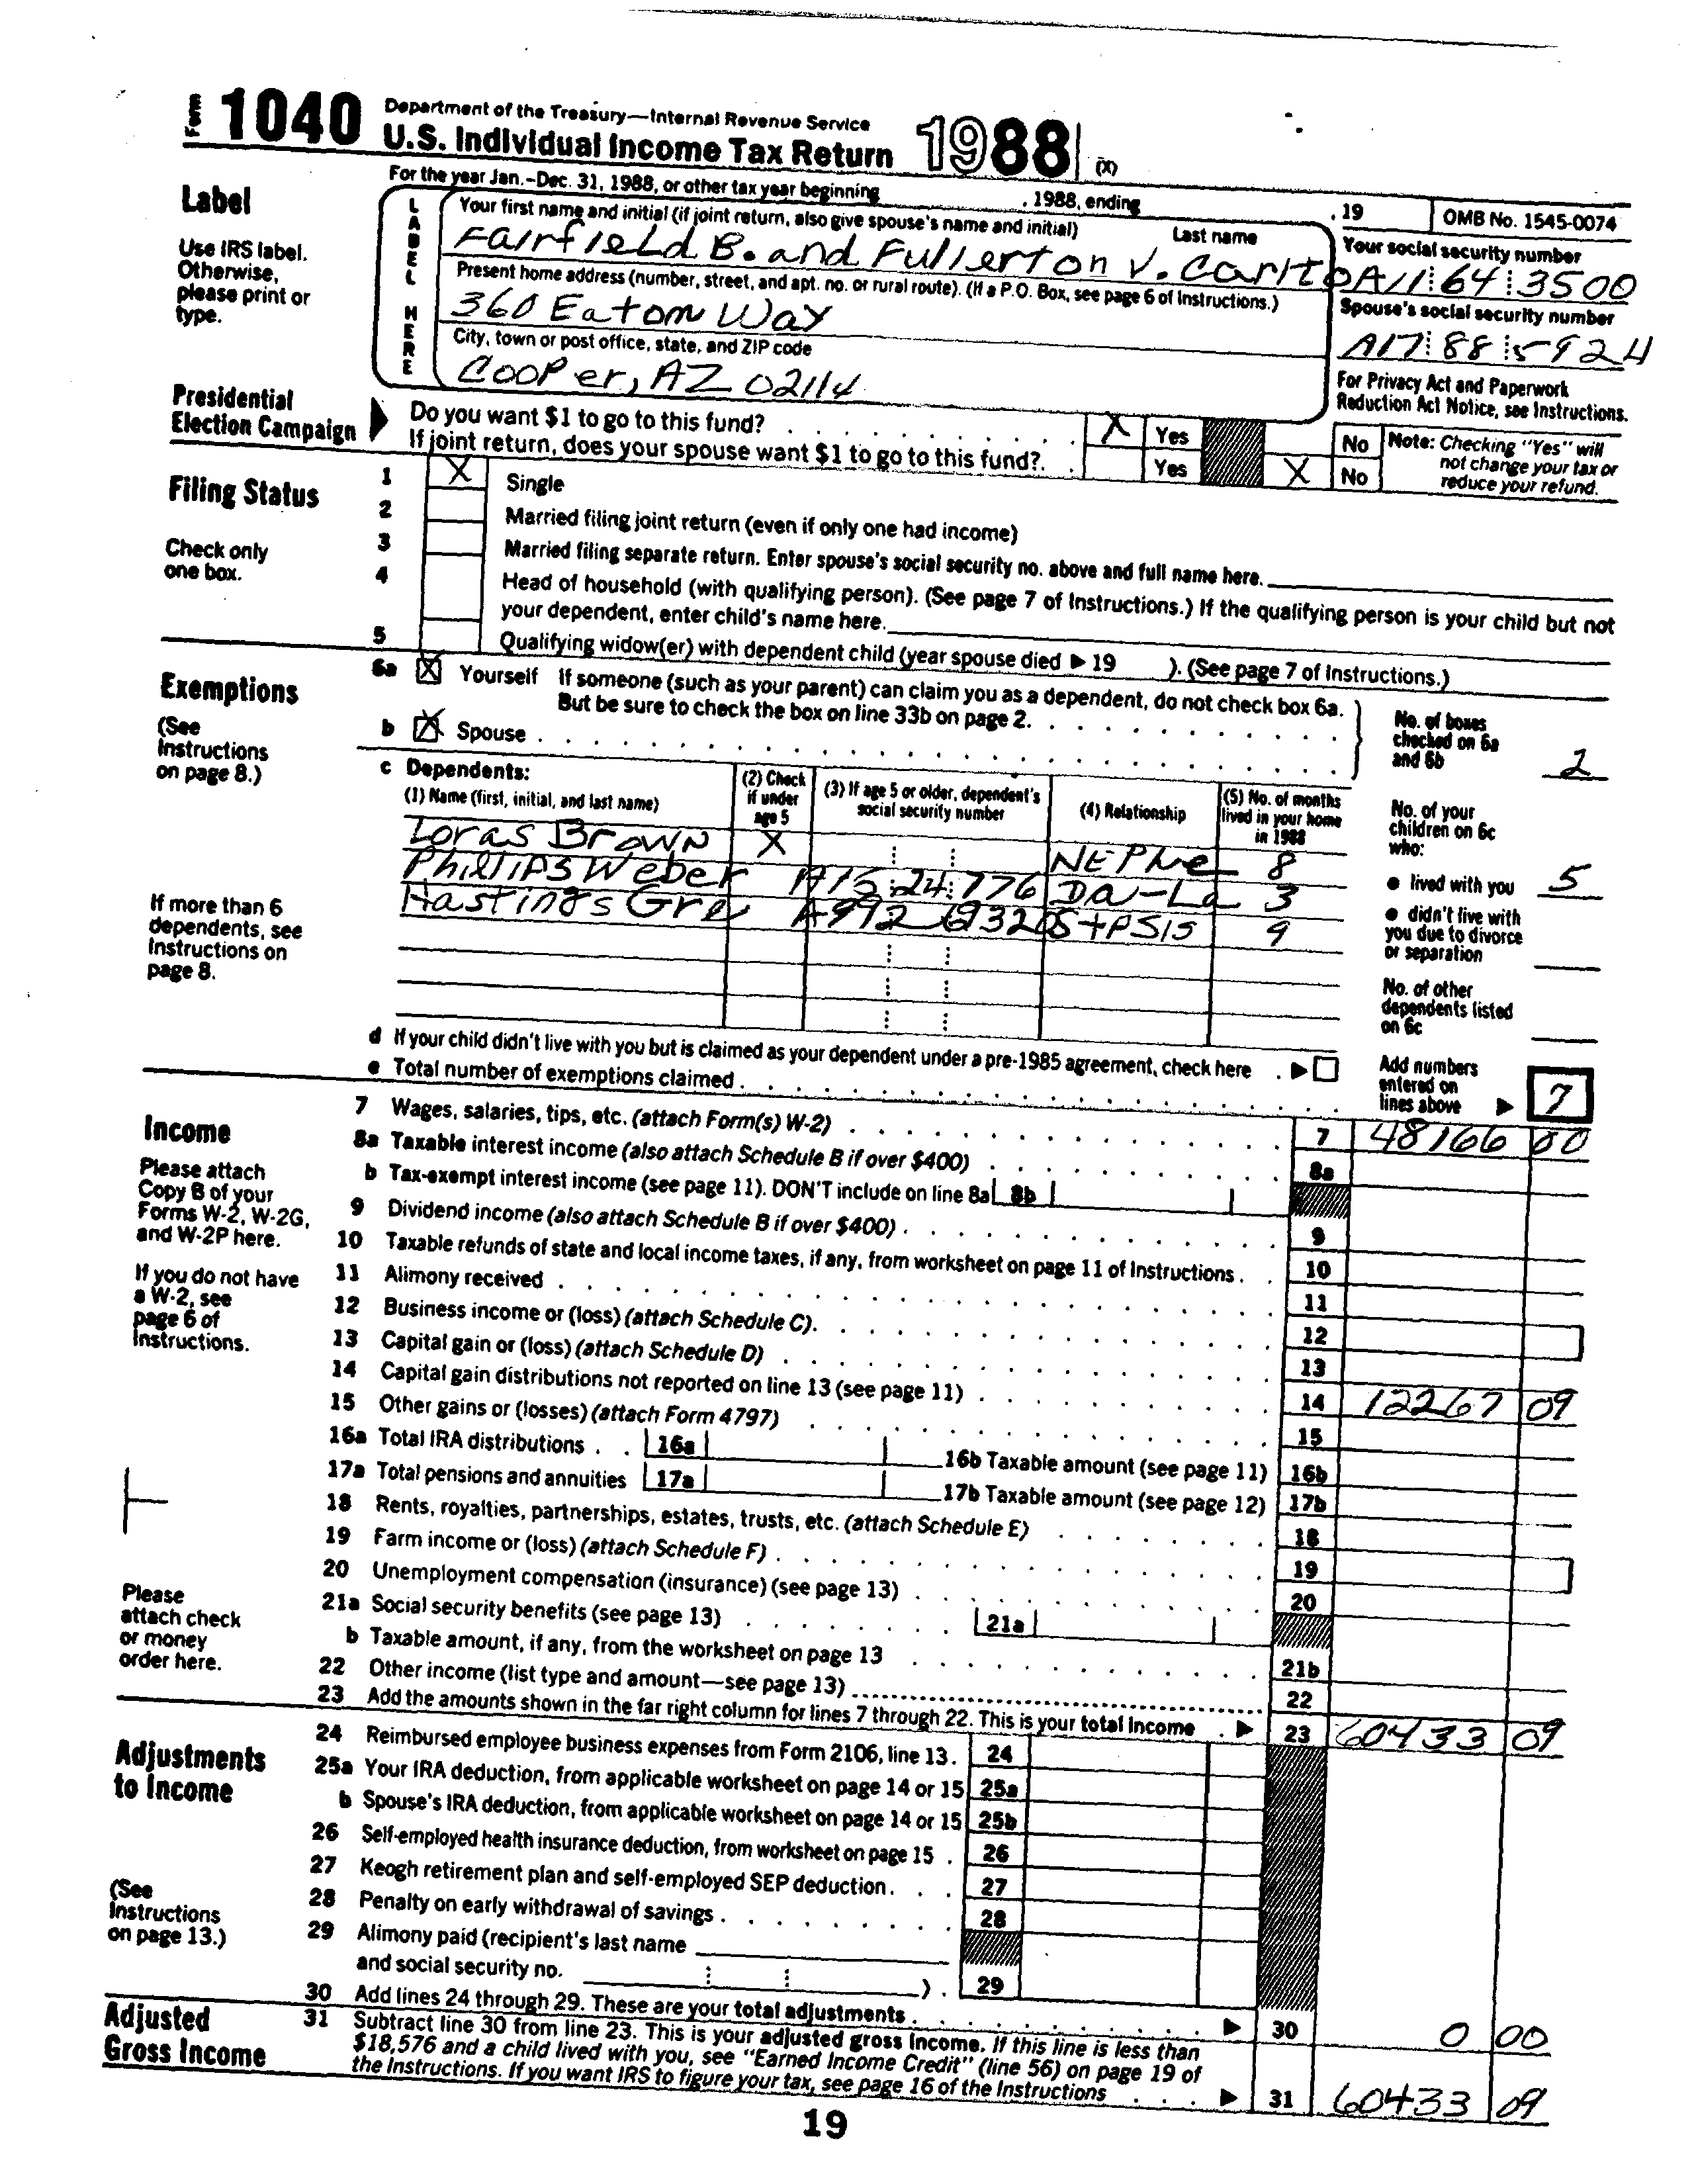 Form 1040 Department of the Treasury—Internal Revenue Service
U.S. Individual Income Tax Return 1988 (X)
For the year Jan.-Dec. 31, 1988, or other tax year beginning , 1988, ending , 19 OMB No. 1545-0074
Label
Use IRS label. Otherwise, please print or type.
LABEL HERE
Your first name and initial (if joint return, also give spouse's name and initial) Last name
Fairfield B. and Fullerton V. Carlto
Your social security number
A11 64 3500
Present home address (number, street, and apt. no. or rural route). (If a P.O. Box, see page 6 of Instructions.)
360 Eaton Way
Spouse's social security number
A17 88 5924
City, town or post office, state, and ZIP code
Cooper, AZ 02114
For Privacy Act and Paperwork Reduction Act Notice, see Instructions.
Presidential Election Campaign
Do you want $1 to go to this fund? X Yes No
If joint return, does your spouse want $1 to go to this fund?. Yes X No
Note: Checking "Yes" will not change your tax or reduce your refund.
Filing Status
Check only one box.
1 X Single
2 Married filing joint return (even if only one had income)
3 Married filing separate return. Enter spouse's social security no. above and full name here.
4 Head of household (with qualifying person). (See page 7 of Instructions.) If the qualifying person is your child but not
your dependent, enter child's name here.
5 Qualifying widow(er) with dependent child (year spouse died ▶ 19 ). (See page 7 of Instructions.)
Exemptions
(See Instructions on page 8.)
6a X Yourself If someone (such as your parent) can claim you as a dependent, do not check box 6a.
But be sure to check the box on line 33b on page 2.
b X Spouse
No. of boxes checked on 6a and 6b 2
c Dependents:
(1) Name (first, initial, and last name) (2) Check if under age 5 (3) If age 5 or older, dependent's social security number (4) Relationship (5) No. of months lived in your home in 1988
Loras Brown X NEPhe 8
Phillips Weber A15 24 776 Da-La 3
Hastings Gre A992 69320 StPSis 9
No. of your children on 6c who:
● lived with you 5
● didn't live with you due to divorce or separation
No. of other dependents listed on 6c
If more than 6 dependents, see Instructions on page 8.
d If your child didn't live with you but is claimed as your dependent under a pre-1985 agreement, check here ▶
e Total number of exemptions claimed
Add numbers entered on lines above ▶ 7
Income
Please attach Copy B of your Forms W-2, W-2G, and W-2P here.
If you do not have a W-2, see page 6 of Instructions.
Please attach check or money order here.
7 Wages, salaries, tips, etc. (attach Form(s) W-2) 7 48166 00
8a Taxable interest income (also attach Schedule B if over $400) 8a
b Tax-exempt interest income (see page 11). DON'T include on line 8a 8b
9 Dividend income (also attach Schedule B if over $400) 9
10 Taxable refunds of state and local income taxes, if any, from worksheet on page 11 of Instructions 10
11 Alimony received 11
12 Business income or (loss) (attach Schedule C). 12
13 Capital gain or (loss) (attach Schedule D) 13
14 Capital gain distributions not reported on line 13 (see page 11) 14 12267 09
15 Other gains or (losses) (attach Form 4797) 15
16a Total IRA distributions 16a 16b Taxable amount (see page 11) 16b
17a Total pensions and annuities 17a 17b Taxable amount (see page 12) 17b
18 Rents, royalties, partnerships, estates, trusts, etc. (attach Schedule E) 18
19 Farm income or (loss) (attach Schedule F) 19
20 Unemployment compensation (insurance) (see page 13) 20
21a Social security benefits (see page 13) 21a
b Taxable amount, if any, from the worksheet on page 13 21b
22 Other income (list type and amount—see page 13) 22
23 Add the amounts shown in the far right column for lines 7 through 22. This is your total income ▶ 23 60433 09
Adjustments to Income
(See Instructions on page 13.)
24 Reimbursed employee business expenses from Form 2106, line 13. 24
25a Your IRA deduction, from applicable worksheet on page 14 or 15 25a
b Spouse's IRA deduction, from applicable worksheet on page 14 or 15 25b
26 Self-employed health insurance deduction, from worksheet on page 15 26
27 Keogh retirement plan and self-employed SEP deduction 27
28 Penalty on early withdrawal of savings 28
29 Alimony paid (recipient's last name
and social security no. ). 29
30 Add lines 24 through 29. These are your total adjustments ▶ 30 0 00
Adjusted Gross Income
31 Subtract line 30 from line 23. This is your adjusted gross income. If this line is less than
$18,576 and a child lived with you, see "Earned Income Credit" (line 56) on page 19 of
the Instructions. If you want IRS to figure your tax, see page 16 of the Instructions ▶ 31 60433 09
19